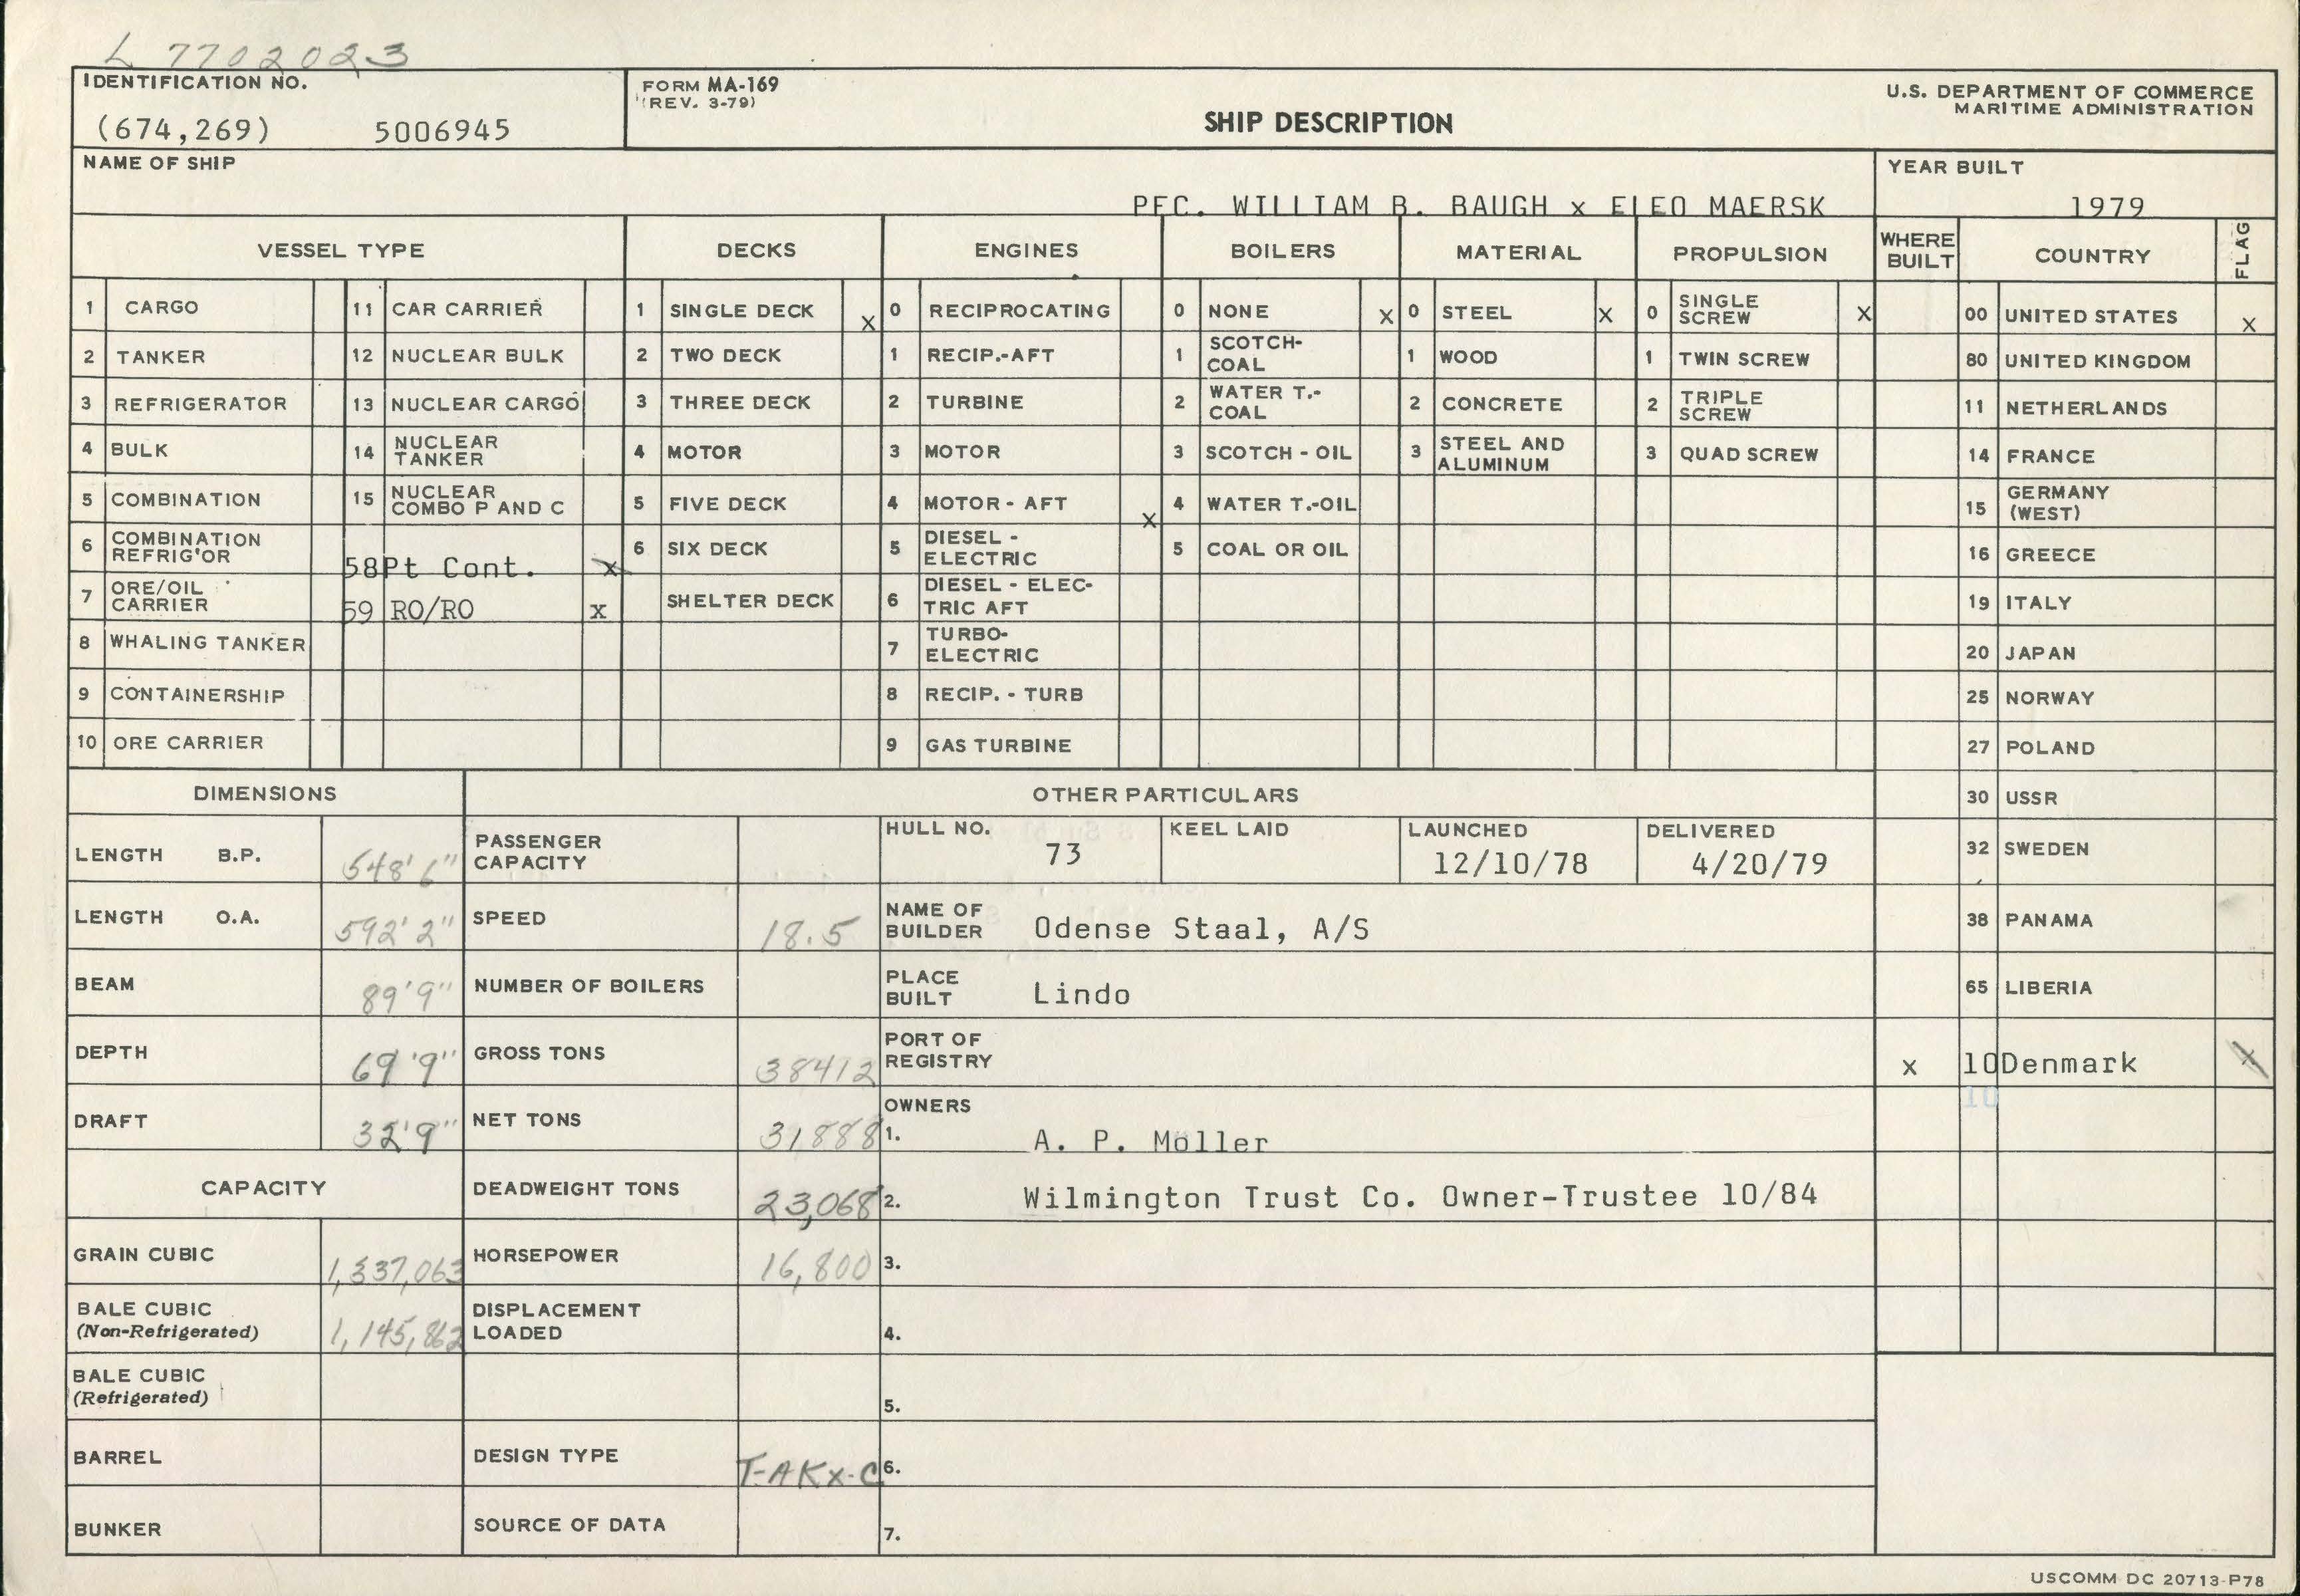 L 7702023
IDENTIFICATION NO.
(674,269) 5006945
FORM MA-169
(REV. 3-79)
SHIP DESCRIPTION
U.S. DEPARTMENT OF COMMERCE
MARITIME ADMINISTRATION
NAME OF SHIP
PFC. WILLIAM B. BAUGH x ELEO MAERSK
YEAR BUILT
1979
VESSEL TYPE DECKS ENGINES BOILERS MATERIAL PROPULSION WHERE BUILT COUNTRY FLAG
1 CARGO 11 CAR CARRIER 1 SINGLE DECK x 0 RECIPROCATING 0 NONE x 0 STEEL x 0 SINGLE SCREW x 00 UNITED STATES x
2 TANKER 12 NUCLEAR BULK 2 TWO DECK 1 RECIP.-AFT 1 SCOTCH-COAL 1 WOOD 1 TWIN SCREW 80 UNITED KINGDOM
3 REFRIGERATOR 13 NUCLEAR CARGO 3 THREE DECK 2 TURBINE 2 WATER T.-COAL 2 CONCRETE 2 TRIPLE SCREW 11 NETHERLANDS
4 BULK 14 NUCLEAR TANKER 4 MOTOR 3 MOTOR 3 SCOTCH - OIL 3 STEEL AND ALUMINUM 3 QUAD SCREW 14 FRANCE
5 COMBINATION 15 NUCLEAR COMBO P AND C 5 FIVE DECK 4 MOTOR - AFT x 4 WATER T.-OIL 15 GERMANY (WEST)
6 COMBINATION REFRIG'OR 58 Pt Cont. x 6 SIX DECK 5 DIESEL - ELECTRIC 5 COAL OR OIL 16 GREECE
7 ORE/OIL CARRIER 59 RO/RO x SHELTER DECK 6 DIESEL - ELECTRIC AFT 19 ITALY
8 WHALING TANKER 7 TURBO-ELECTRIC 20 JAPAN
9 CONTAINERSHIP 8 RECIP. - TURB 25 NORWAY
10 ORE CARRIER 9 GAS TURBINE 27 POLAND
DIMENSIONS OTHER PARTICULARS 30 USSR
LENGTH B.P. 548' 6" PASSENGER CAPACITY HULL NO. 73 KEEL LAID LAUNCHED 12/10/78 DELIVERED 4/20/79 32 SWEDEN
LENGTH O.A. 592' 2" SPEED 18.5 NAME OF BUILDER Odense Staal, A/S 38 PANAMA
BEAM 89'9" NUMBER OF BOILERS PLACE BUILT Lindo 65 LIBERIA
DEPTH 69'9" GROSS TONS 38412 PORT OF REGISTRY x 10 Denmark x
DRAFT 32'9" NET TONS 31888 OWNERS 1. A. P. Moller
CAPACITY DEADWEIGHT TONS 23,068 2. Wilmington Trust Co. Owner-Trustee 10/84
GRAIN CUBIC 1,337,063 HORSEPOWER 16,800 3.
BALE CUBIC (Non-Refrigerated) 1,145,862 DISPLACEMENT LOADED 4.
BALE CUBIC (Refrigerated) 5.
BARREL DESIGN TYPE T-AKx-C 6.
BUNKER SOURCE OF DATA 7.
USCOMM-DC 20713-P78